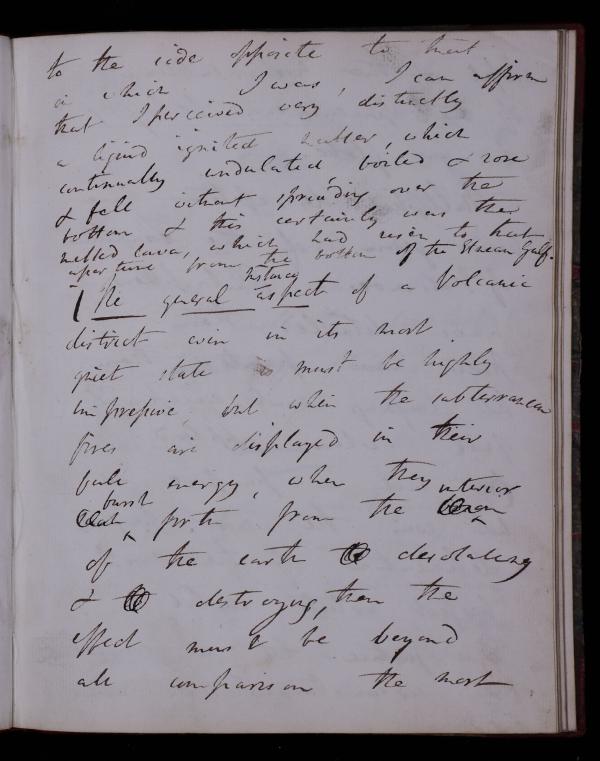 to the side opposite to that
in which I was, I can affirm
that I perceived very distinctly
a liquid ignited matter, which
continually undulated, boiled & rose
& fell without spreading over the
bottom & this certainly was the
melted lava, which had risen to that
aperture from the bottom of the Etnean Gulf.
The general aspect of a Volcanic
district even in its most
quiet state is must be highly
impressive but when the subterranean
fires are displayed in their
full energy, when they
burst forth from the interior
of the earth desolating
& destroying, then the
effect must be beyond
all comparison the most